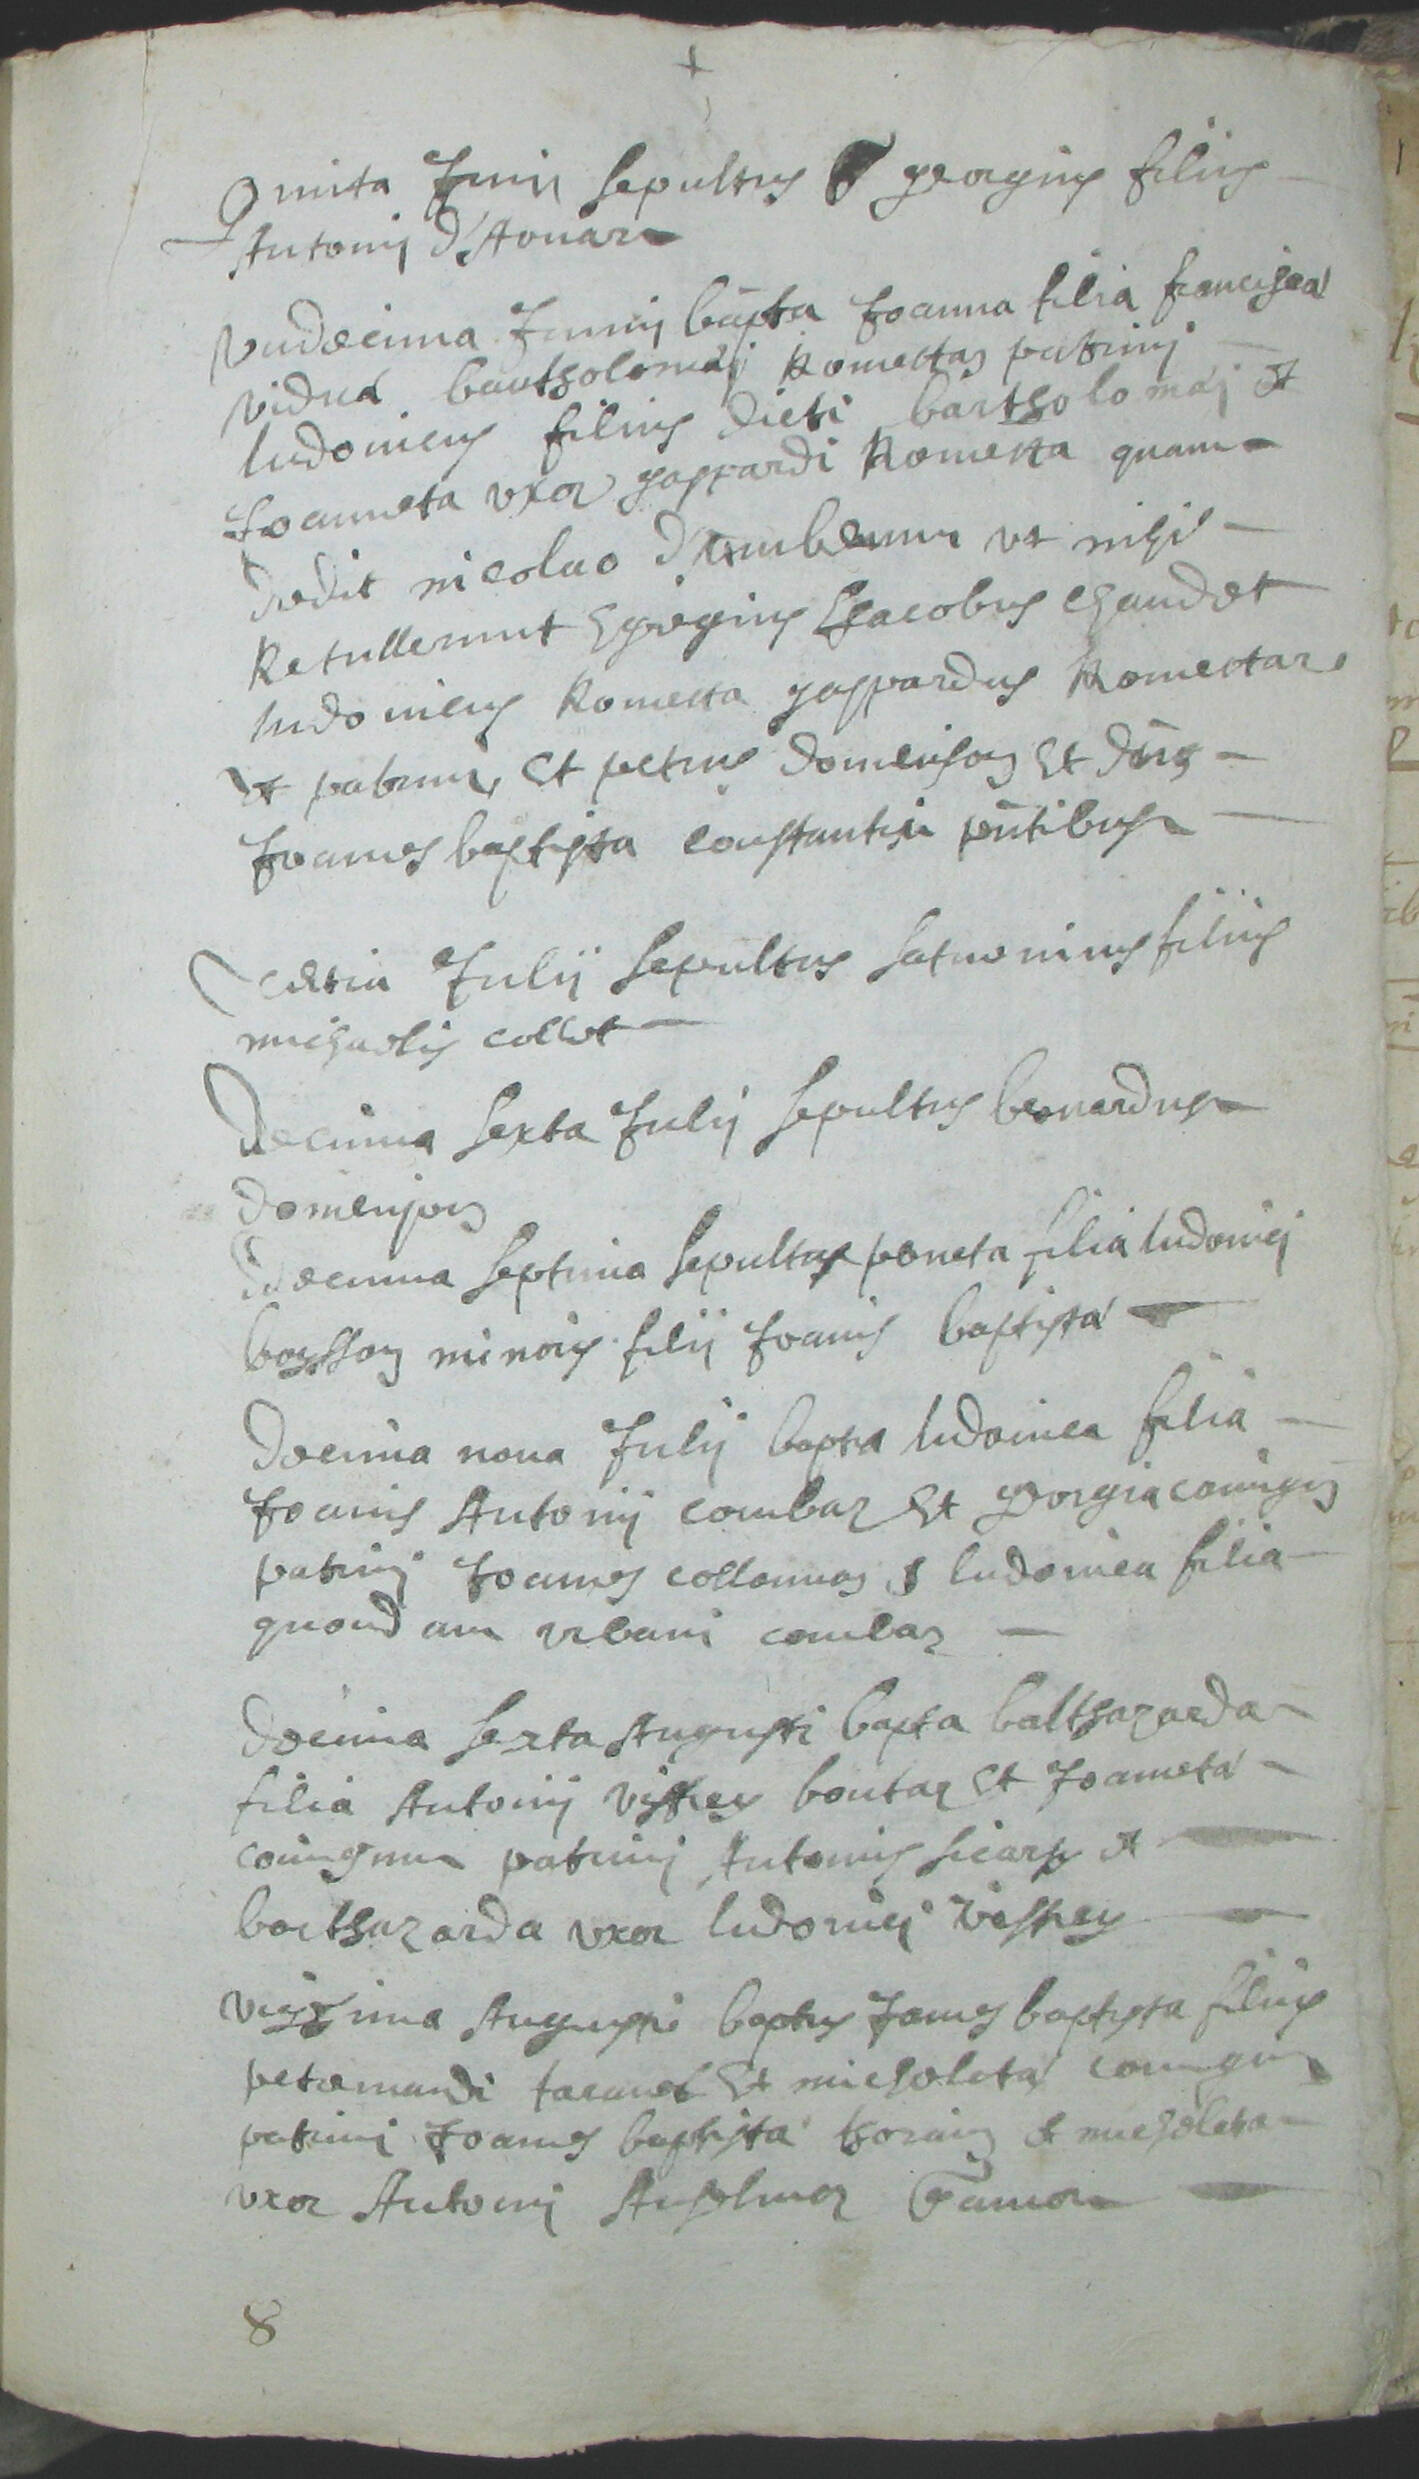 +
Quinta Junii sepultus georgius filius
Antonii d'Avenar
undecima Junii bapta Joanna filia francisca
vidua bartholomaj Romettaz patrini
ludovicus filius dicti bartholomaj et
Joanneta uxor gaspardi Rometta quam
dedit nicolao ut mihi
Retullerunt Egregius Jacobus chaudet
ludovicus Rometta gaspardus Romettaz
et patrini et petrus domenjoz et dnus
Joannes baptista constantin pntibus
Tertia Julii sepultus saturninus filius
michaelis collet
Decima sexta Julij sepultus bernardus
domenjoz
Decima septima sepulta peneta filia ludovici
boysson minoris filij Joanis baptista
Decima nona Julij bapta ludovica filia
Joanis Antonij combaz et georgia conjugum
patrini Joannes collomaz & ludovica filia
quondam urbani combaz
Decima sexta Augusti bapta balthazarda
filia Antonij vissey boutaz et Joaneta
conjugum patrini Antonius sicars et
balthazarda uxor ludovici vissey
vigesima Augusti baptus Joanes baptista filius
petremandi et micholeta conjugum
patrini Joannes baptista et micholeta
uxor Antonij Anselmoz
8